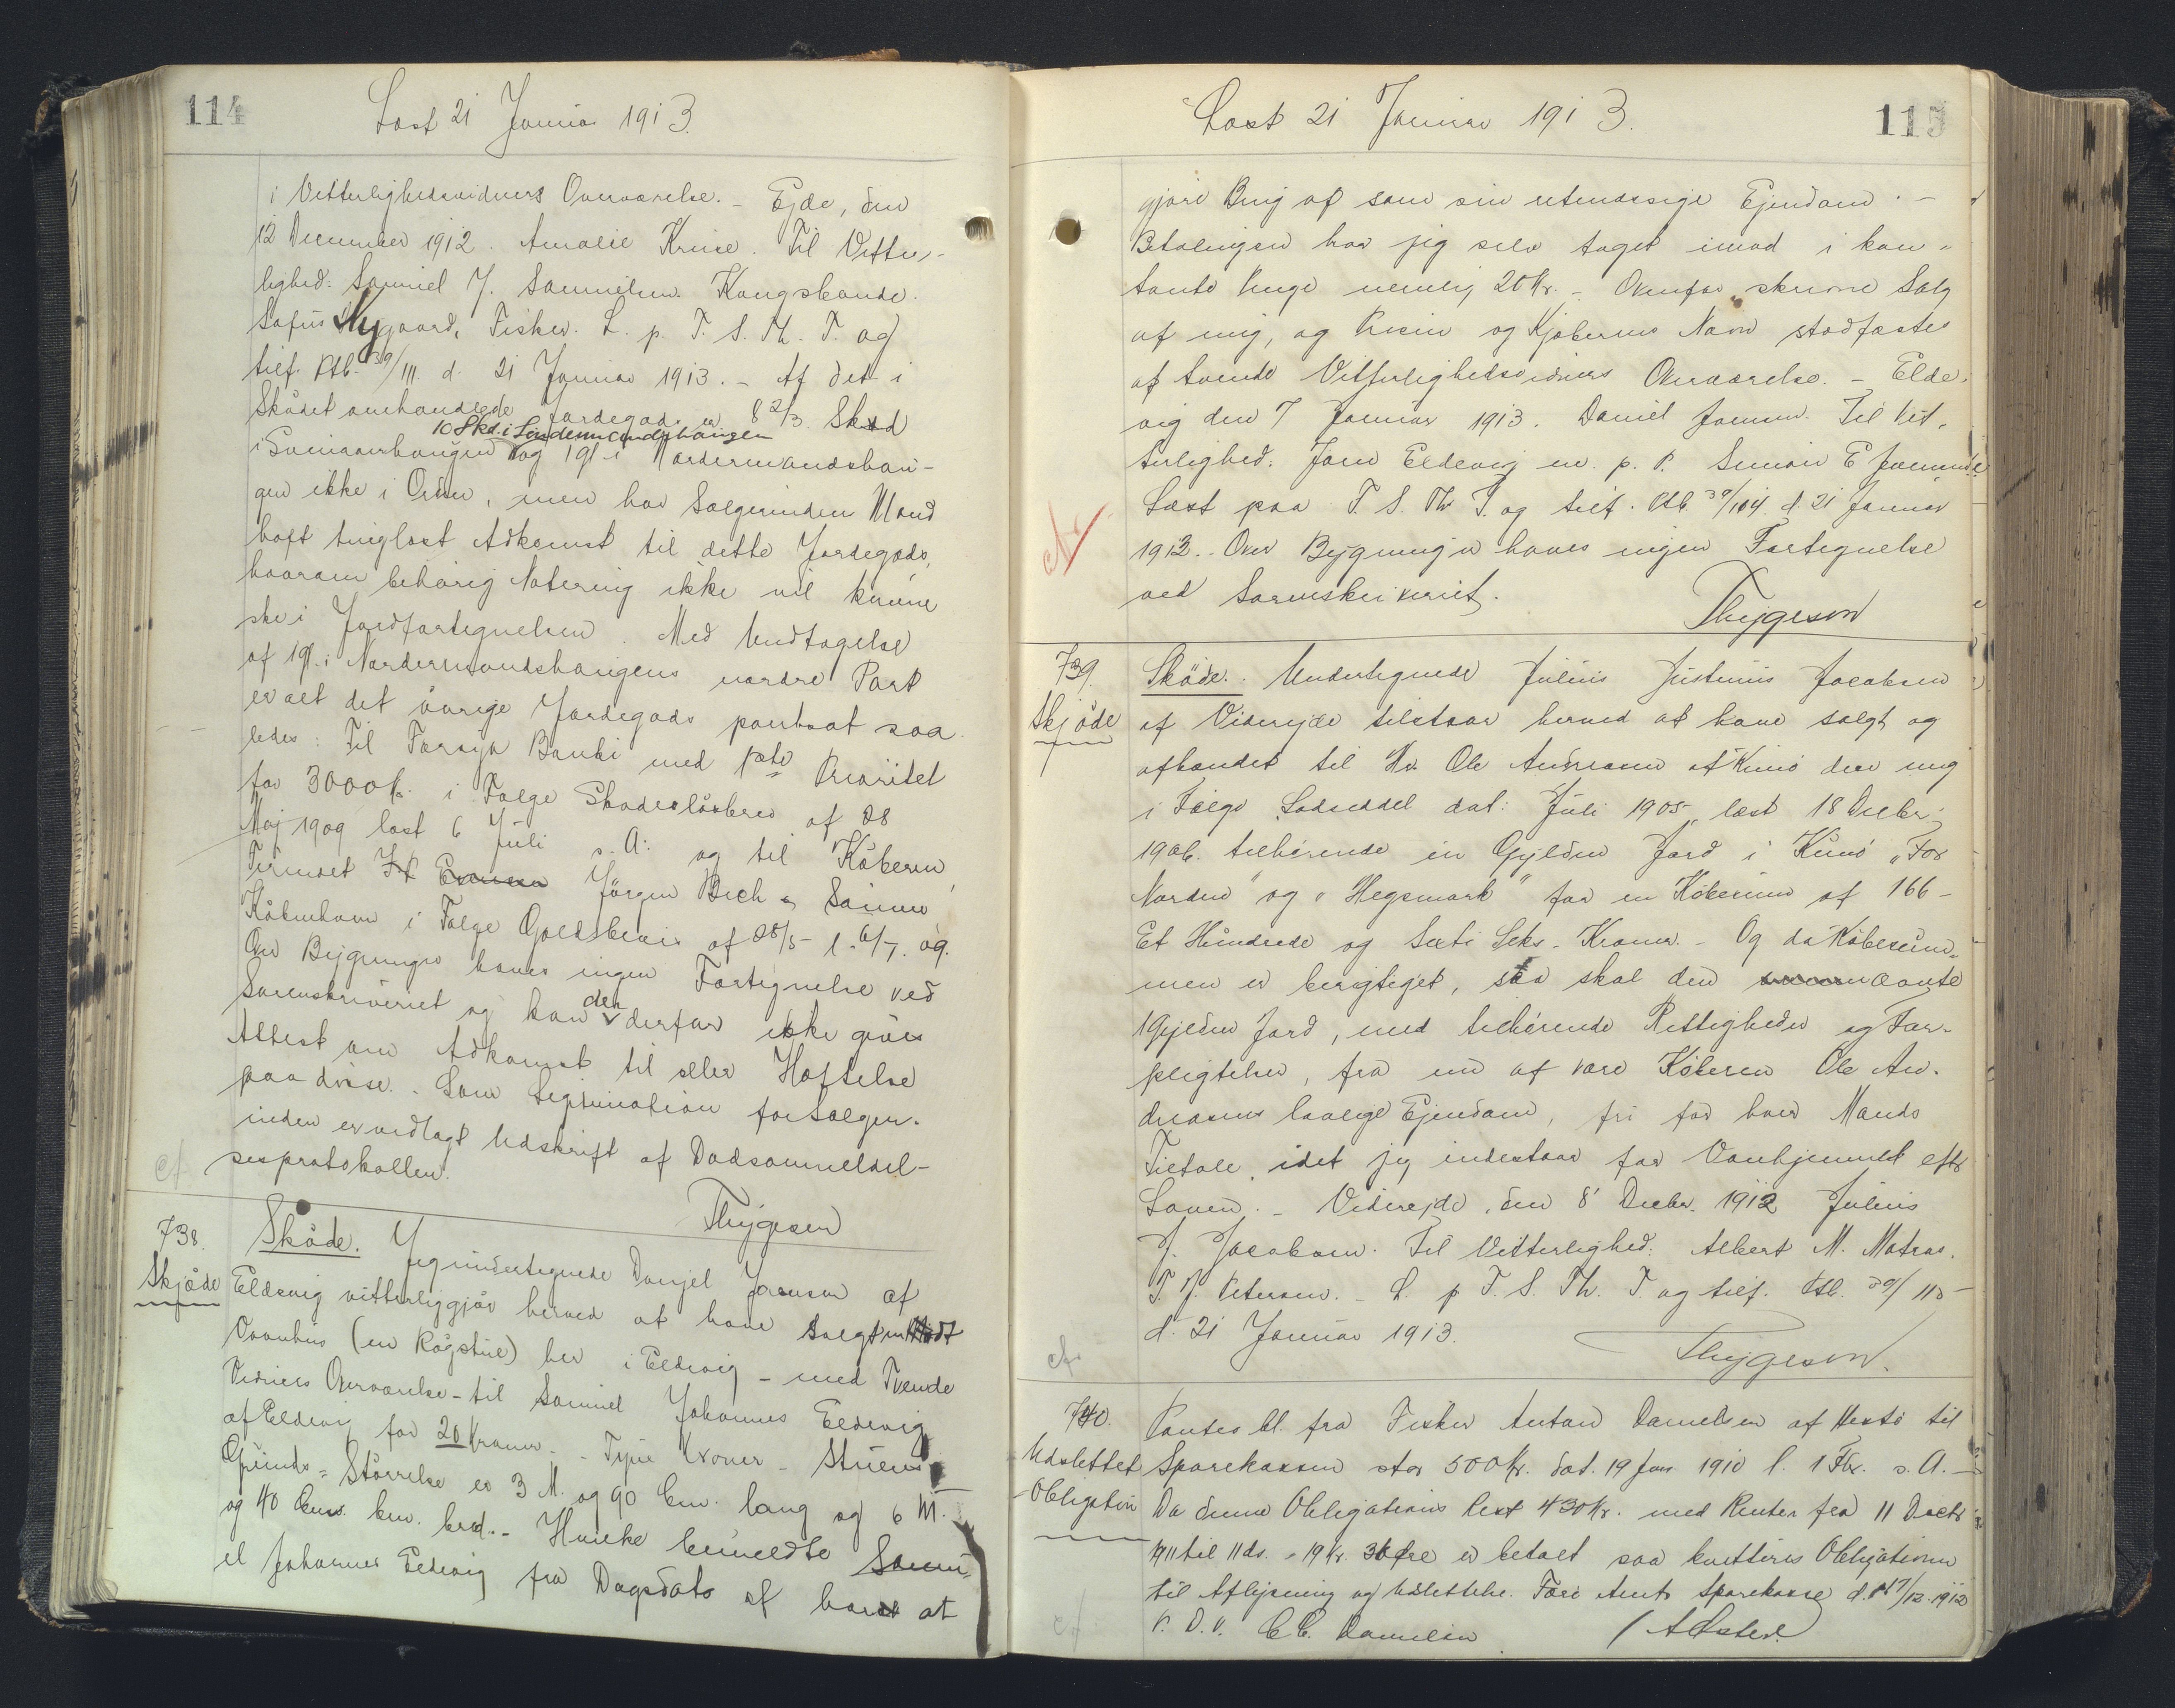 114
Læst 21 Januar 1913.
i Vitterlighedsvidners Overværelse. – Ejde, den
12 December 1912. Amalie Kruse. Til Vitter-
lighed: Samuel J. Samuelsen. Kongsbonde.
Sofus Nygaard, Fisker. L. p. T. S. Th. T. og
tilf. Ptb. 39/111 d. 21 Januar 1913. – Af det i
Skødet omhandlede Jordegods er 8 2/3 Skind
10 Skd. i Sindemandshaugen
i og 1 gl i Nordermandshau-
gen ikke i Orden, men har Sælgerinden Mand
haft tinglæst Adkomst til dette Jordegods,
hvorom behørig Notering ikke vil kunne
ske i Jordfortegnelsen. Med Undtagelse
af 1 gl. i Nordermandshaugens nordre Part
er alt det øvrige Jordegods pantsat saa-
ledes: Til Færøya Banki med 1ste Prioritet
for 3000 Kr. i Følge Skadesløsbrev af 28
Maj 1909 læst 6 Juli s. A. og til Køberen,
Firmaet Jørgen Bech & Sønner
København i Følge Gældsbevis af 28/5 – l. 6/7. 09.
Over Bygninger haves ingen Fortegnelse ved
Sorenskriveriet og kan der derfor ikke gives
Attest om Adkomst til eller Hæftelse
paa disse. – Som Legitimation for Sælger-
inden er vedlagt Udskrift af Dødsanmeldel-
sesprotokollen.
cf.
Thygesen
738.
Skjøde
Skøde. Jeg undertegnede Danjel Joensen af
Eldevig vitterliggjør herved at have solgt mit
Vaanhus (en Røgstue) her i Eldevig – med Tvende
Vidners Overværelse – til Samuel Johannes Eldevig
af Eldevig for 20 Kroner – Tyve Kroner – Stuens
Grunds-Størrelse er 3 M. og 90 Cm. lang og 6 M.
og 40 Cm. bred. – Hvilke bemeldte Samu-
el Johannes Eldevig fra Dagsdato af har at
115
Læst 21 Januar 1913.
gjøre Brug af som sin retmæssige Ejendom. –
Betalingen har jeg selv taget imod i kon-
tante Penge nemlig 20 Kr. – Ovenfor skrevne Salg
af mig, og Prisen og Kjøberens Navn stadfæstes
af tvende Vitterlighedsvidners Overværelse. – Elde-
vig den 7 Januar 1913. Daniel Joensen. Til Vit-
terlighed: Joen Eldevig m. p. P. Simon E Joensen
Læst paa T. S. Th. T. og tilf. Ptb. 39/104 d. 21 Januar
1913. Over Bygningen haves ingen Fortegnelse
ved Sorenskriveriet.
cf.
Thygesen
739.
Skjøde
Skøde. Undertegnede Julius Justinus Jacobsen
af Viderejde tilstaar herved at have solgt og
afhændet til Hr. Ole Andreasen af Kunø den mig
i Følge Lodseddel dat: Juli 1905, læst 18 Decbr.
1906. tilhørende en Gylden Jord i Kunø „For
Norden“ og „Hegsmark“ for en Købesum af 166 –
Et Hundrede og Sexti Seks – Kroner. – Og da Købesum-
men er berigtiget, saa skal den solgte
1 Gylden Jord, med tilhørende Rettigheder og For-
pligtelser, fra nu af være Køberen Ole An-
dreasens lovlige Ejendom, fri for hver Mands
Tiltale, idet jeg indestaar for Vanhjemmel efter
Loven. – Viderejde, den 8' Decbr. 1912 Julius
J. Jacobsen. Til Vitterlighed: Albert M. Matras.
T. J. Petersen. – L. p T. S. Th. T. og tilf. Ptb. 39/115
d. 21 Januar 1913.
cf.
Thygesen.
740.
Udslettet
Obligation
Pantes bl. fra Fisker Anton Danielsen af Nestø til
Sparekassen stor 500 Kr. dat. 19 Jan 1910 l. 1 Fbr. s. A. –
Da denne Obligations Rest 430 Kr. med Renter fra 11 Decbr
1911 til 11 ds. = 19 Kr. 36 Øre er betalt saa kvitteres Obligationen
til Aflysning og Udslettelse. Færø Amts Sparekasse d. 17/12. 1912
P. D. V. C. C. Danielsen
cf.